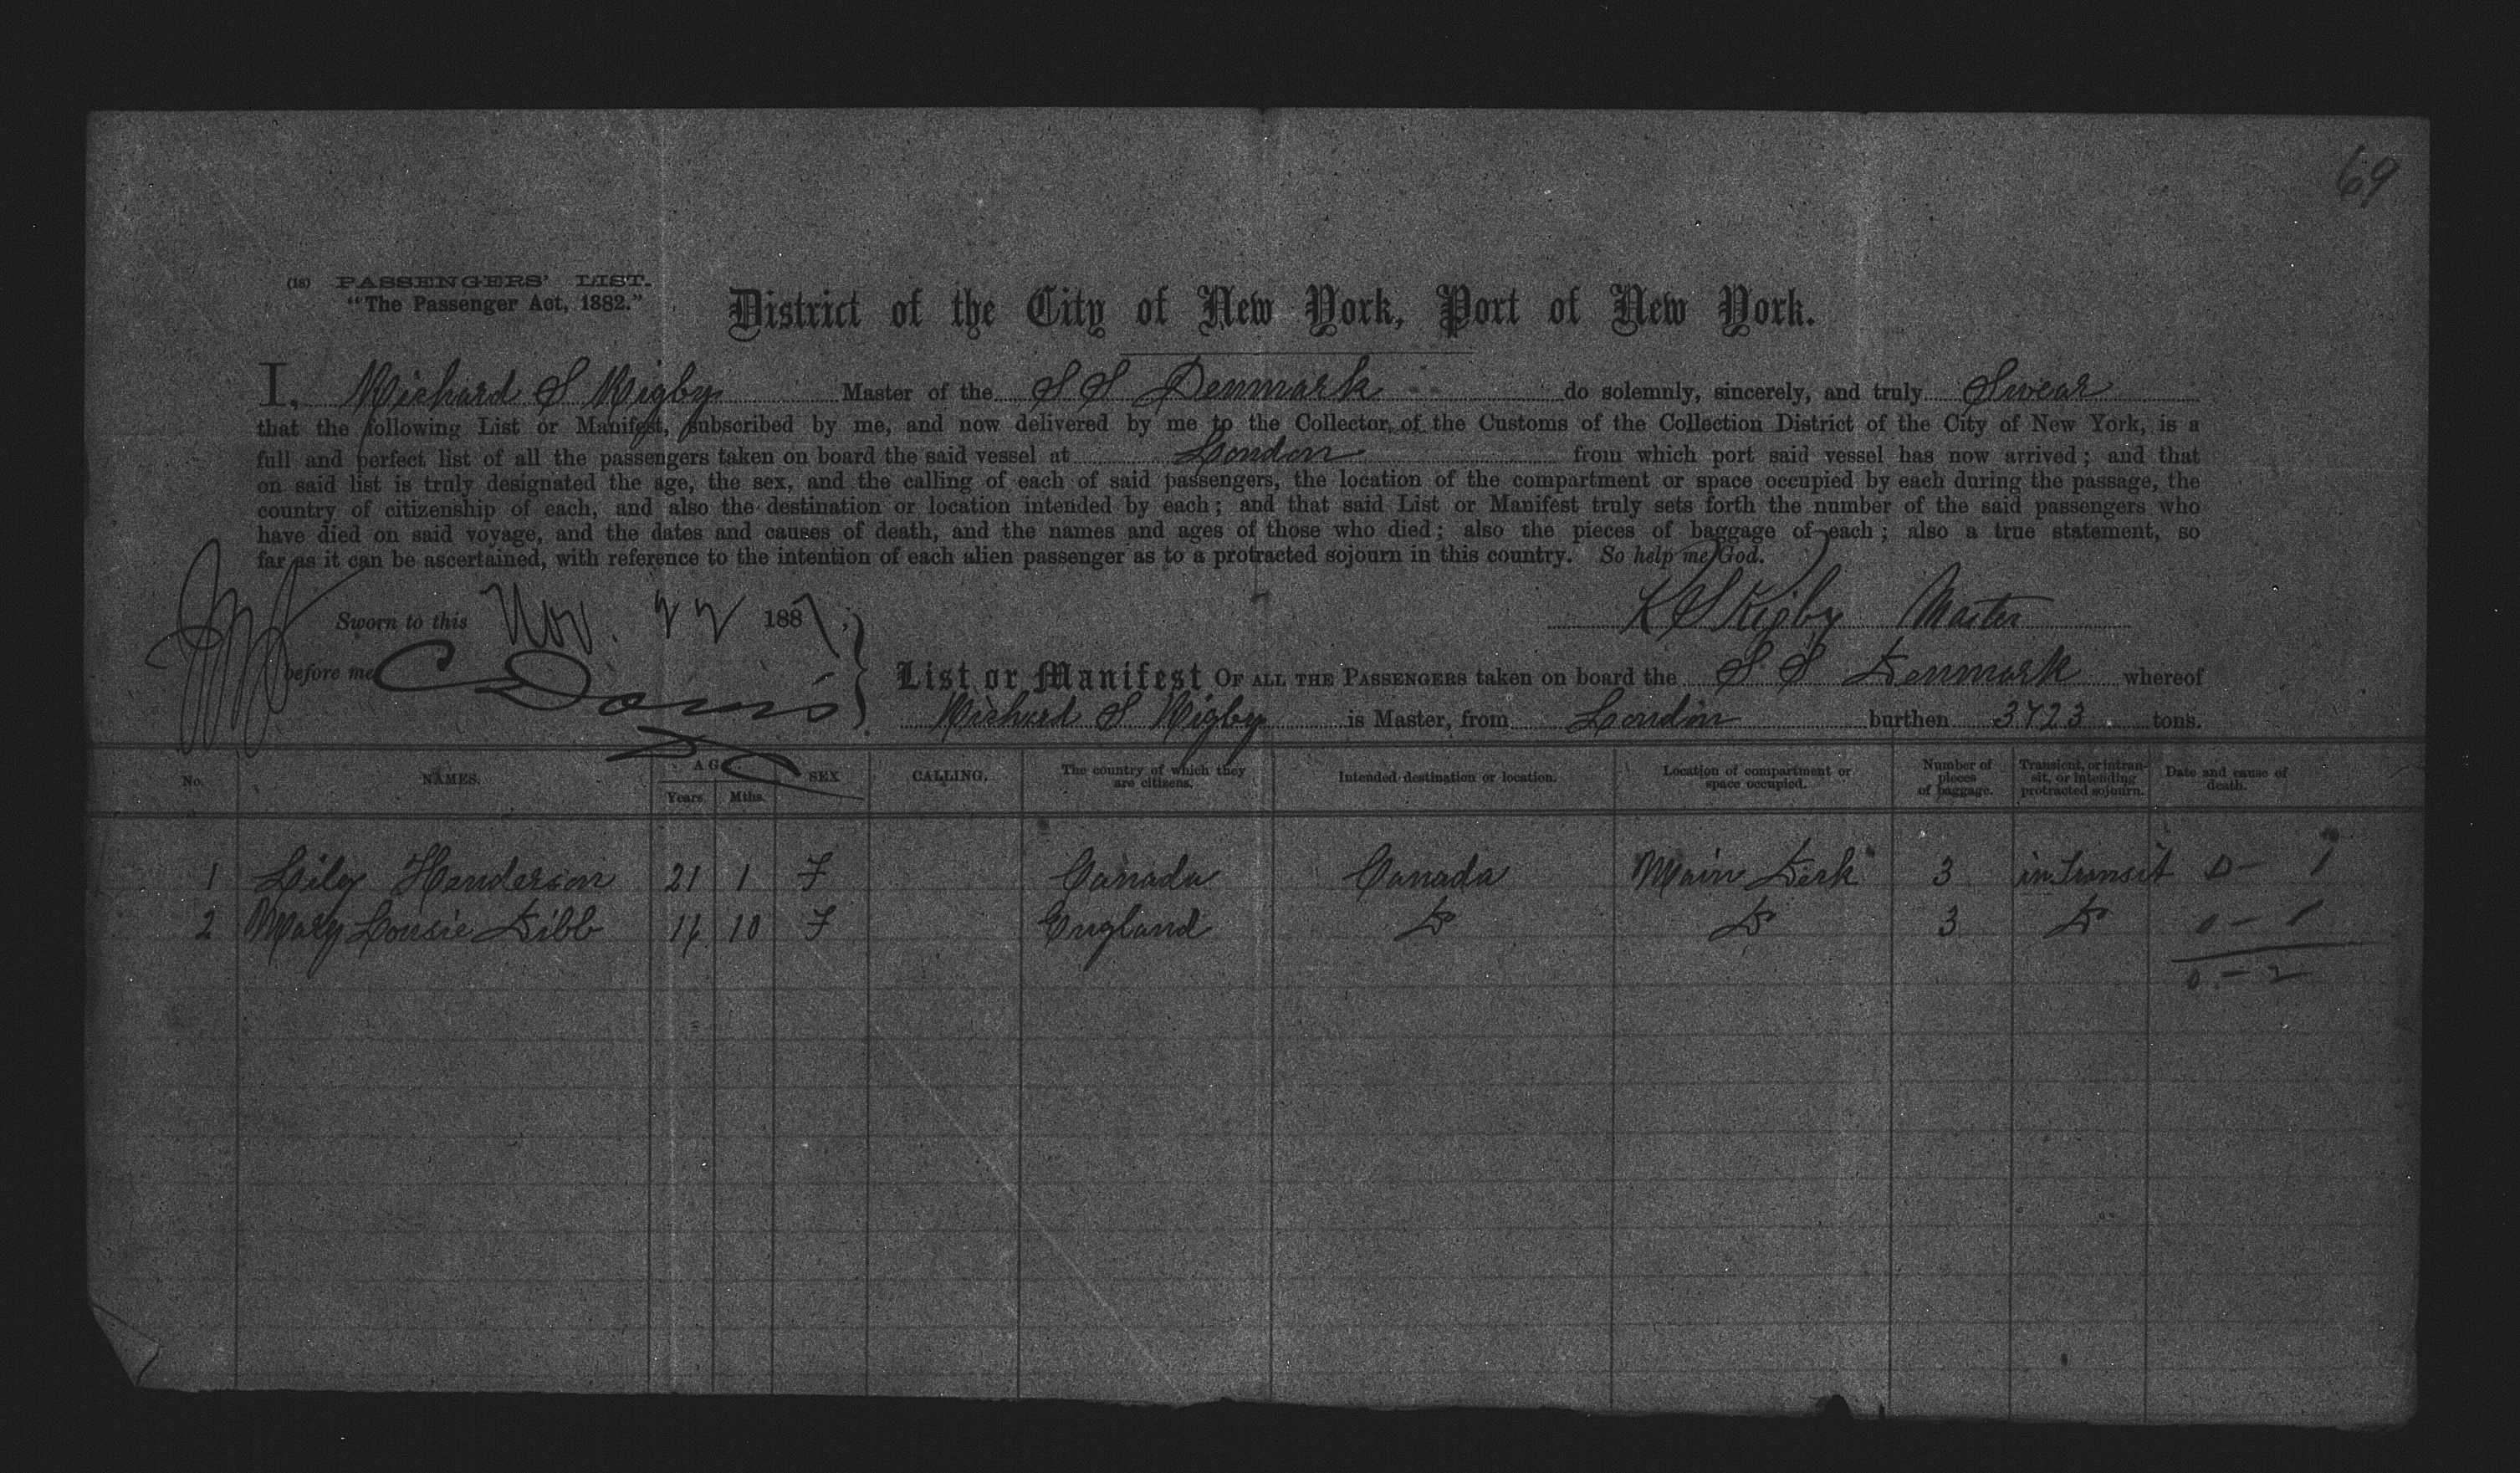 69
(18) PASSENGERS' LIST.
"The Passenger Act, 1882."
District of the City of New York, Port of New York.
I, Richard S Rigby Master of the S S Denmark do solemnly, sincerely, and truly Swear
that the following List or Manifest, subscribed by me, and now delivered by me to the Collector of the Customs of the Collection District of the City of New York, is a
full and perfect list of all the passengers taken on board the said vessel at London from which port said vessel has now arrived; and that
on said list is truly designated the age, the sex, and the calling of each of said passengers, the location of the compartment or space occupied by each during the passage, the
country of citizenship of each, and also the destination or location intended by each; and that said List or Manifest truly sets forth the number of the said passengers who
have died on said voyage, and the dates and causes of death, and the names and ages of those who died; also the pieces of baggage of each; also a true statement, so
far as it can be ascertained, with reference to the intention of each alien passenger as to a protracted sojourn in this country. So help me God.
Sworn to this Nov. 22 1887,
R S Rigby Master
before me
List or Manifest OF ALL THE PASSENGERS taken on board the S S Denmark whereof
Richard S Rigby is Master, from London burthen 3723 tons.
No. NAMES. AGE SEX CALLING. The country of which they are citizens. Intended destination or location. Location of compartment or space occupied. Number of pieces of baggage. Transient, or in transit, or intending protracted sojourn. Date and cause of death.
Years. Mths.
1 Lily Henderson 21 1 F Canada Canada Main Deck 3 in transit 0 - 1
2 Mary Lousie Dibb 10 F England Do Do 3 Do 0 - 1
0 - 2